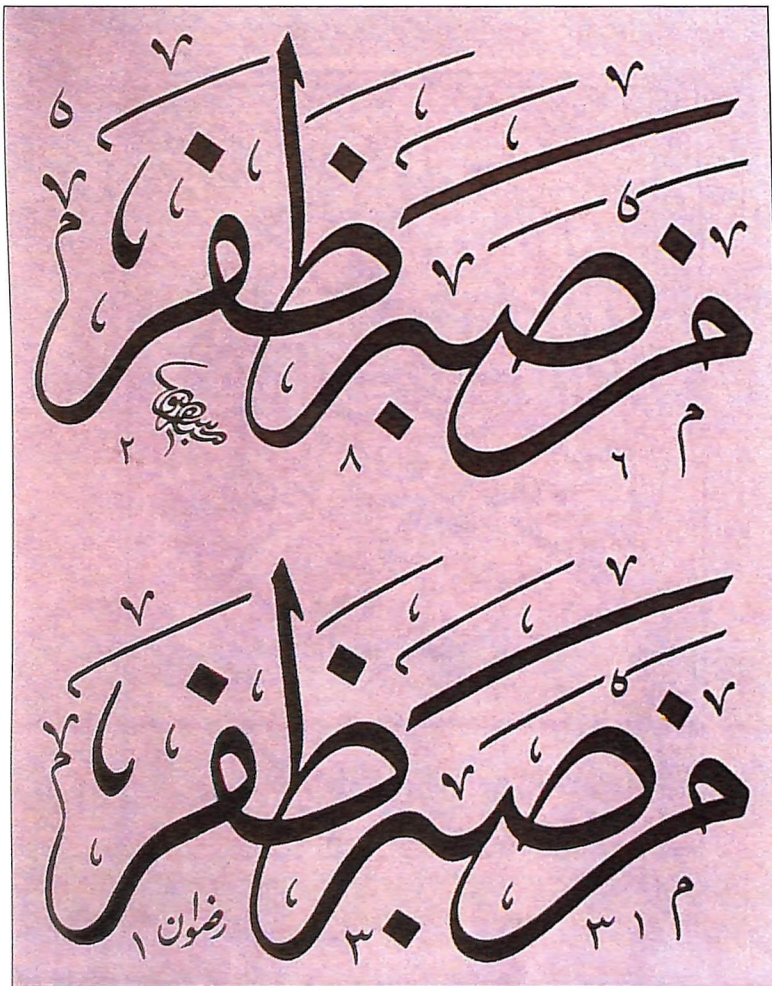 من صبر ظفر
٢ ٨ ٦
من صبر ظفر
رضوان
١ ٣ ٣ ١